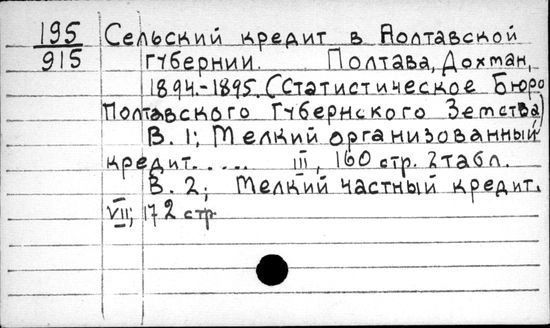 195 Сельский кредит в Полтавской
915 губернии. Полтава, Дохман,
1894.-1895. (Статистическое Бюро
Полтавского Губернского Земства)
В. 1; Мелкий организованный
кредит..... III, 160 стр. 2 табл.
В. 2; Мелкий частный кредит.
VII; 172 стр